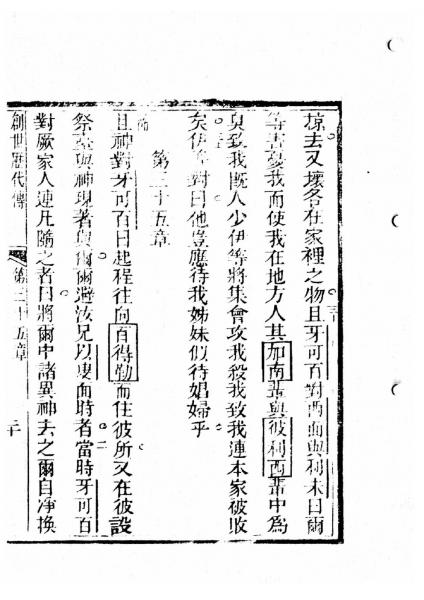 掠去又壞各在家裡之物且牙可百對西面與利未曰爾
等害憂我而使我在地方人其加南輩與彼利西輩中為
臭致我既人少伊等將集會攻我殺我致我連本家被敗
矣伊等對曰他豈應待我姊妹似待娼婦乎
第三十五章
且神對牙可百曰起程往向百得勒而住彼所又在彼設
祭臺與神現著與爾爾避汝兄以叟面時者當時牙可百
對厥家人連凡隨之者曰將爾中諸異神去之爾自淨換
創世歷代傳 第三十五章 三十